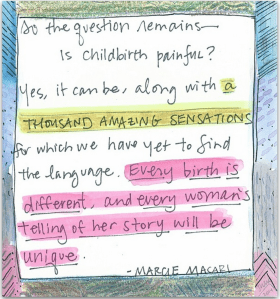 So the question remains—
Is childbirth painful?
Yes, it can be, along with a
THOUSAND AMAZING SENSATIONS
for which we have yet to find
the language. Every birth is
different, and every woman's
telling of her story will be
unique.
- MARCIE MACARI